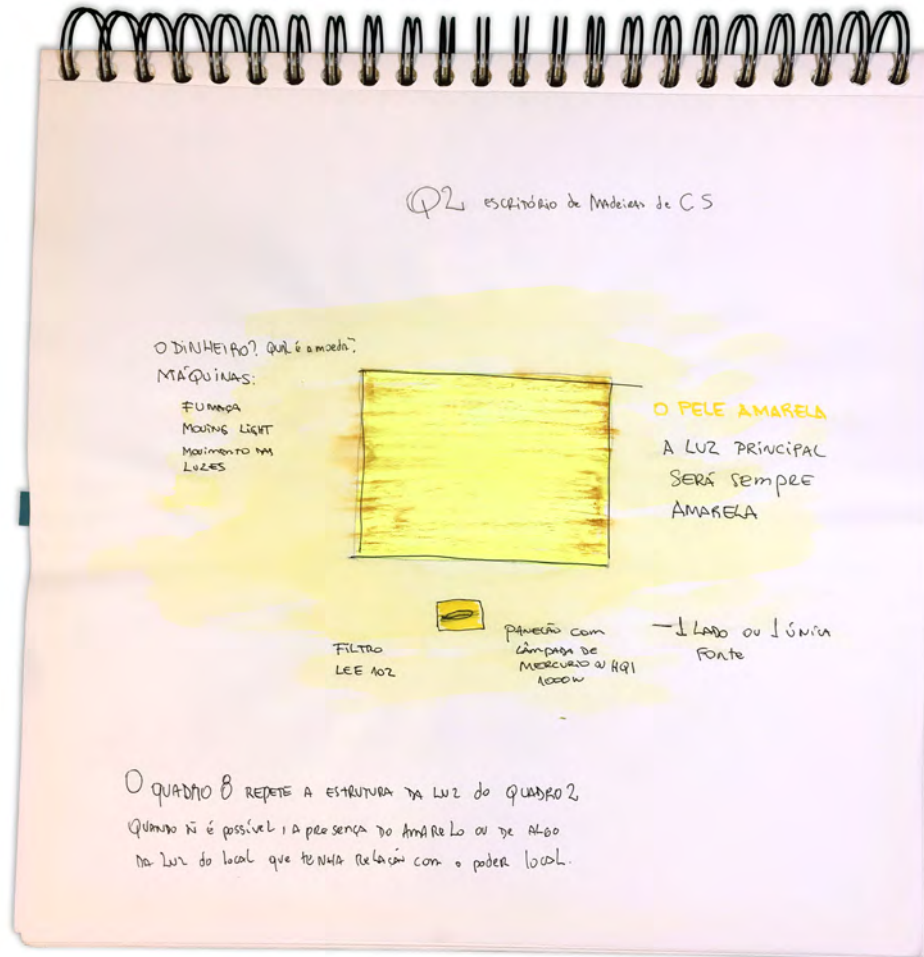 Q2 ESCRITÓRIO de MADEIRAS de C S
O DINHEIRO? QUAL É a moeda?
MÁQUINAS:
FUMAÇA
MOVING LIGHT
MOVIMENTO DAS
LUZES
O PELE AMARELA
A LUZ PRINCIPAL
SERÁ SEMPRE
AMARELA
FILTRO
LEE 102
PANELÃO COM
LÂMPADA DE
MERCURIO OU HQI
1000W
—1 LADO OU 1 ÚNICA
FONTE
O QUADRO 8 REPETE A ESTRUTURA DA LUZ do QUADRO 2
QUANDO Ñ É POSSÍVEL, A PRESENÇA DO AMARELO OU DE ALGO
DA LUZ do local que TENHA Relação com o poder local.